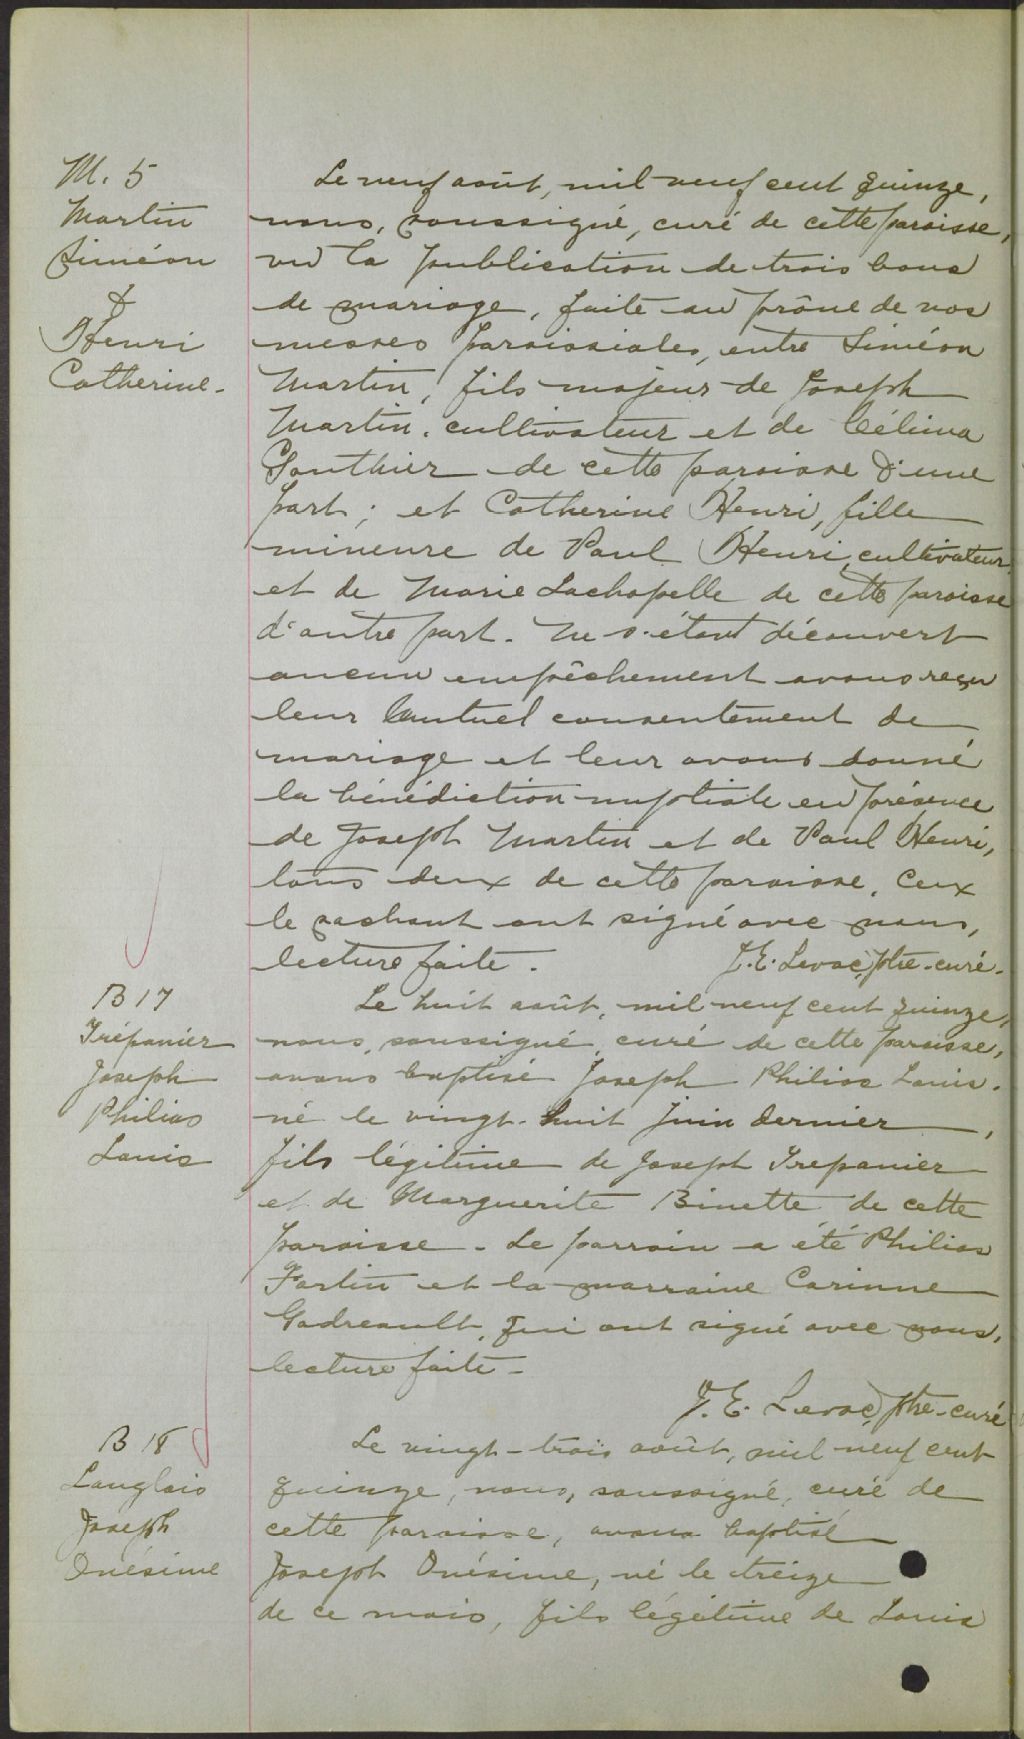 M. 5
Martin
Siméon
&
Henri
Catherine.
Le neuf août, mil neuf cent quinze,
nous, soussigné, curé de cette paroisse,
vu la publication de trois bans
de mariage, faite au prône de nos
messes paroissiales, entre Siméon
Martin, fils majeur de Joseph
Martin, cultivateur et de Célima
Gauthier de cette paroisse d'une
part; et Catherine Henri, fille
mineure de Paul Henri, cultivateur
et de Marie Lachapelle de cette paroisse
d'autre part. Ne s'étant découvert
aucun empêchement avons reçu
leur mutuel consentement de
mariage et leur avons donné
la bénédiction nuptiale en présence
de Joseph Martin et de Paul Henri,
tous deux de cette paroisse. Ceux
le sachant ont signé avec nous,
lecture faite.
J. E. Levac, ptre-curé.
B 17
Trépanier
Joseph
Philias
Louis
Le huit août, mil neuf cent quinze,
nous, soussigné, curé de cette paroisse,
avons baptisé Joseph Philias Louis.
né le vingt-huit juin dernier,
fils légitime de Joseph Trepanier
et de Marguerite Binette de cette
paroisse. Le parrain a été Philias
Fortin et la marraine Corinne
Gadreault, qui ont signé avec nous,
lecture faite.
J. E. Levac, ptre-curé
B 18
Langlois
Joseph
Onésime
Le vingt-trois août, mil neuf cent
quinze, nous, soussigné, curé de
cette paroisse, avons baptisé
Joseph Onésime, né le treize
de ce mois, fils légitime de Louis